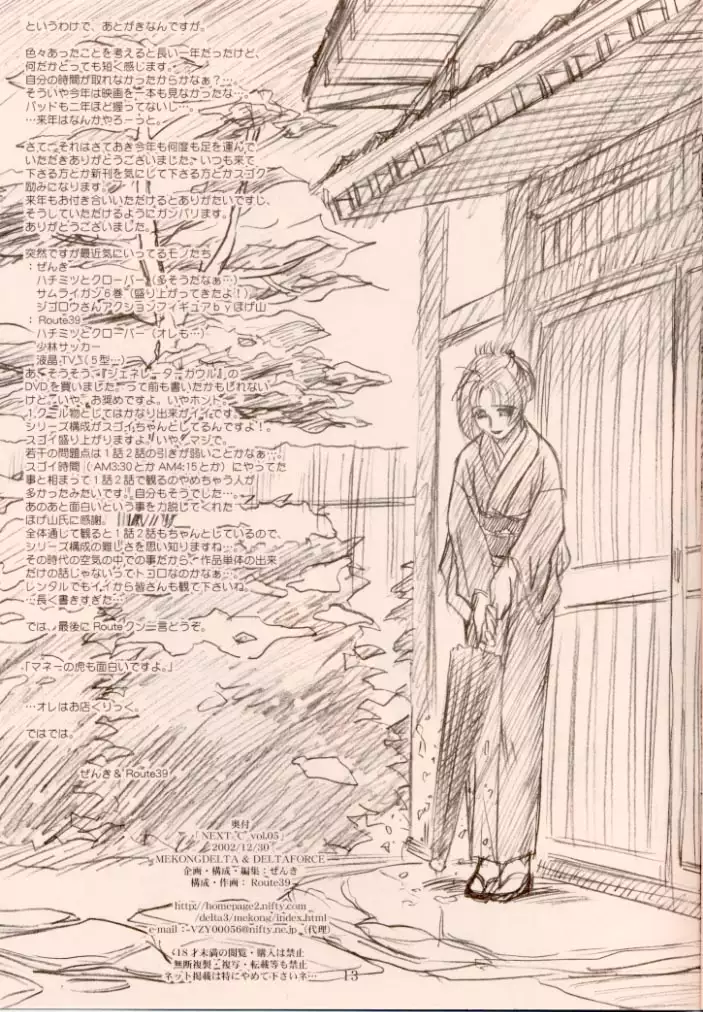 というわけで、あとがきなんですが。
色々あったことを考えると長い一年だったけど、
何だかとっても短く感じます。
自分の時間が取れなかったからかなぁ？…。
そういや今年は映画を一本も見なかったな…。
パッドも二年ほど握ってないし…。
…来年はなんかやろーっと。
さて、それはさておき今年も何度も足を運んで
いただきありがとうございました。いつも来て
下さる方とか新刊を気にして下さる方とかスゴク
励みになります。
来年もお付き合いいただけるとありがたいですし、
そうしていただけるようにガンバリます。
ありがとうございました。
突然ですが最近気にいってるモノたち
：ぜんき
ハチミツとクローバー（多そうだなぁ…）
サムライガン6巻（盛り上がってきたよ！）
ジゴロウさんアクションフィギュアｂｙほげ山
：Route39
ハチミツとクローバー（オレも…）
少林サッカー
液晶TV（５型…）
あ、そうそう、『ジェネレーターガウル』の
DVDを買いました。って前も書いたかもしれない
けど、いや、お奨めですよ。いやホント。
１クール物としてはかなり出来がイイです。
シリーズ構成がスゴイちゃんとしてるんですよ！。
スゴイ盛り上がりますよ。いや、マジで。
若干の問題点は１話２話の引きが弱いことかなぁ…。
スゴイ時間（AM3:30とかAM4:15とか）にやってた
事と相まって１話２話で観るのやめちゃう人が
多かったみたいです。自分もそうでした…。
あのあと面白いという事を力説してくれた
ほげ山氏に感謝。
全体通して観ると１話２話もちゃんとしているので、
シリーズ構成の難しさを思い知りますね…。
その時代の空気の中での事だから、作品単体の出来
だけの話じゃないってトコロなのかなぁ…。
レンタルでもイイから皆さんも観て下さいね。
…長く書きすぎた…
では、最後にRouteクン一言どうぞ。
「マネーの虎も面白いですよ。」
…オレはお店くりっく。
ではでは。
ぜんき＆Route39
奥付
「NEXT "C" vol.05」
2002/12/30
MEKONGDELTA & DELTAFORCE
企画・構成・編集：ぜんき
構成・作画：Route39
http://homepage2.nifty.com
/delta3/mekong/index.html
e-mail：VZY00056@nifty.ne.jp（代理）
18才未満の閲覧・購入は禁止
無断複製・複写・転載等も禁止
ネット掲載は特にやめて下さいネ…
13